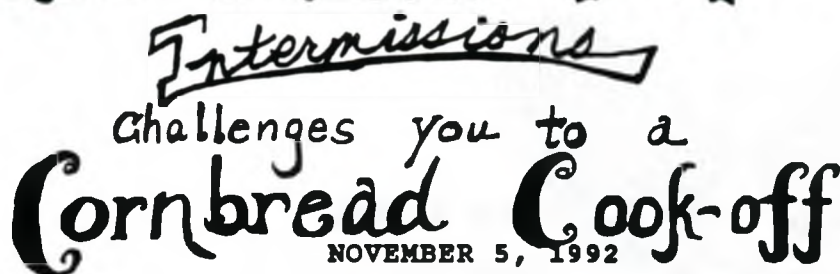 Intermissions
Challenges you to a
Cornbread Cook-off
NOVEMBER 5, 1992